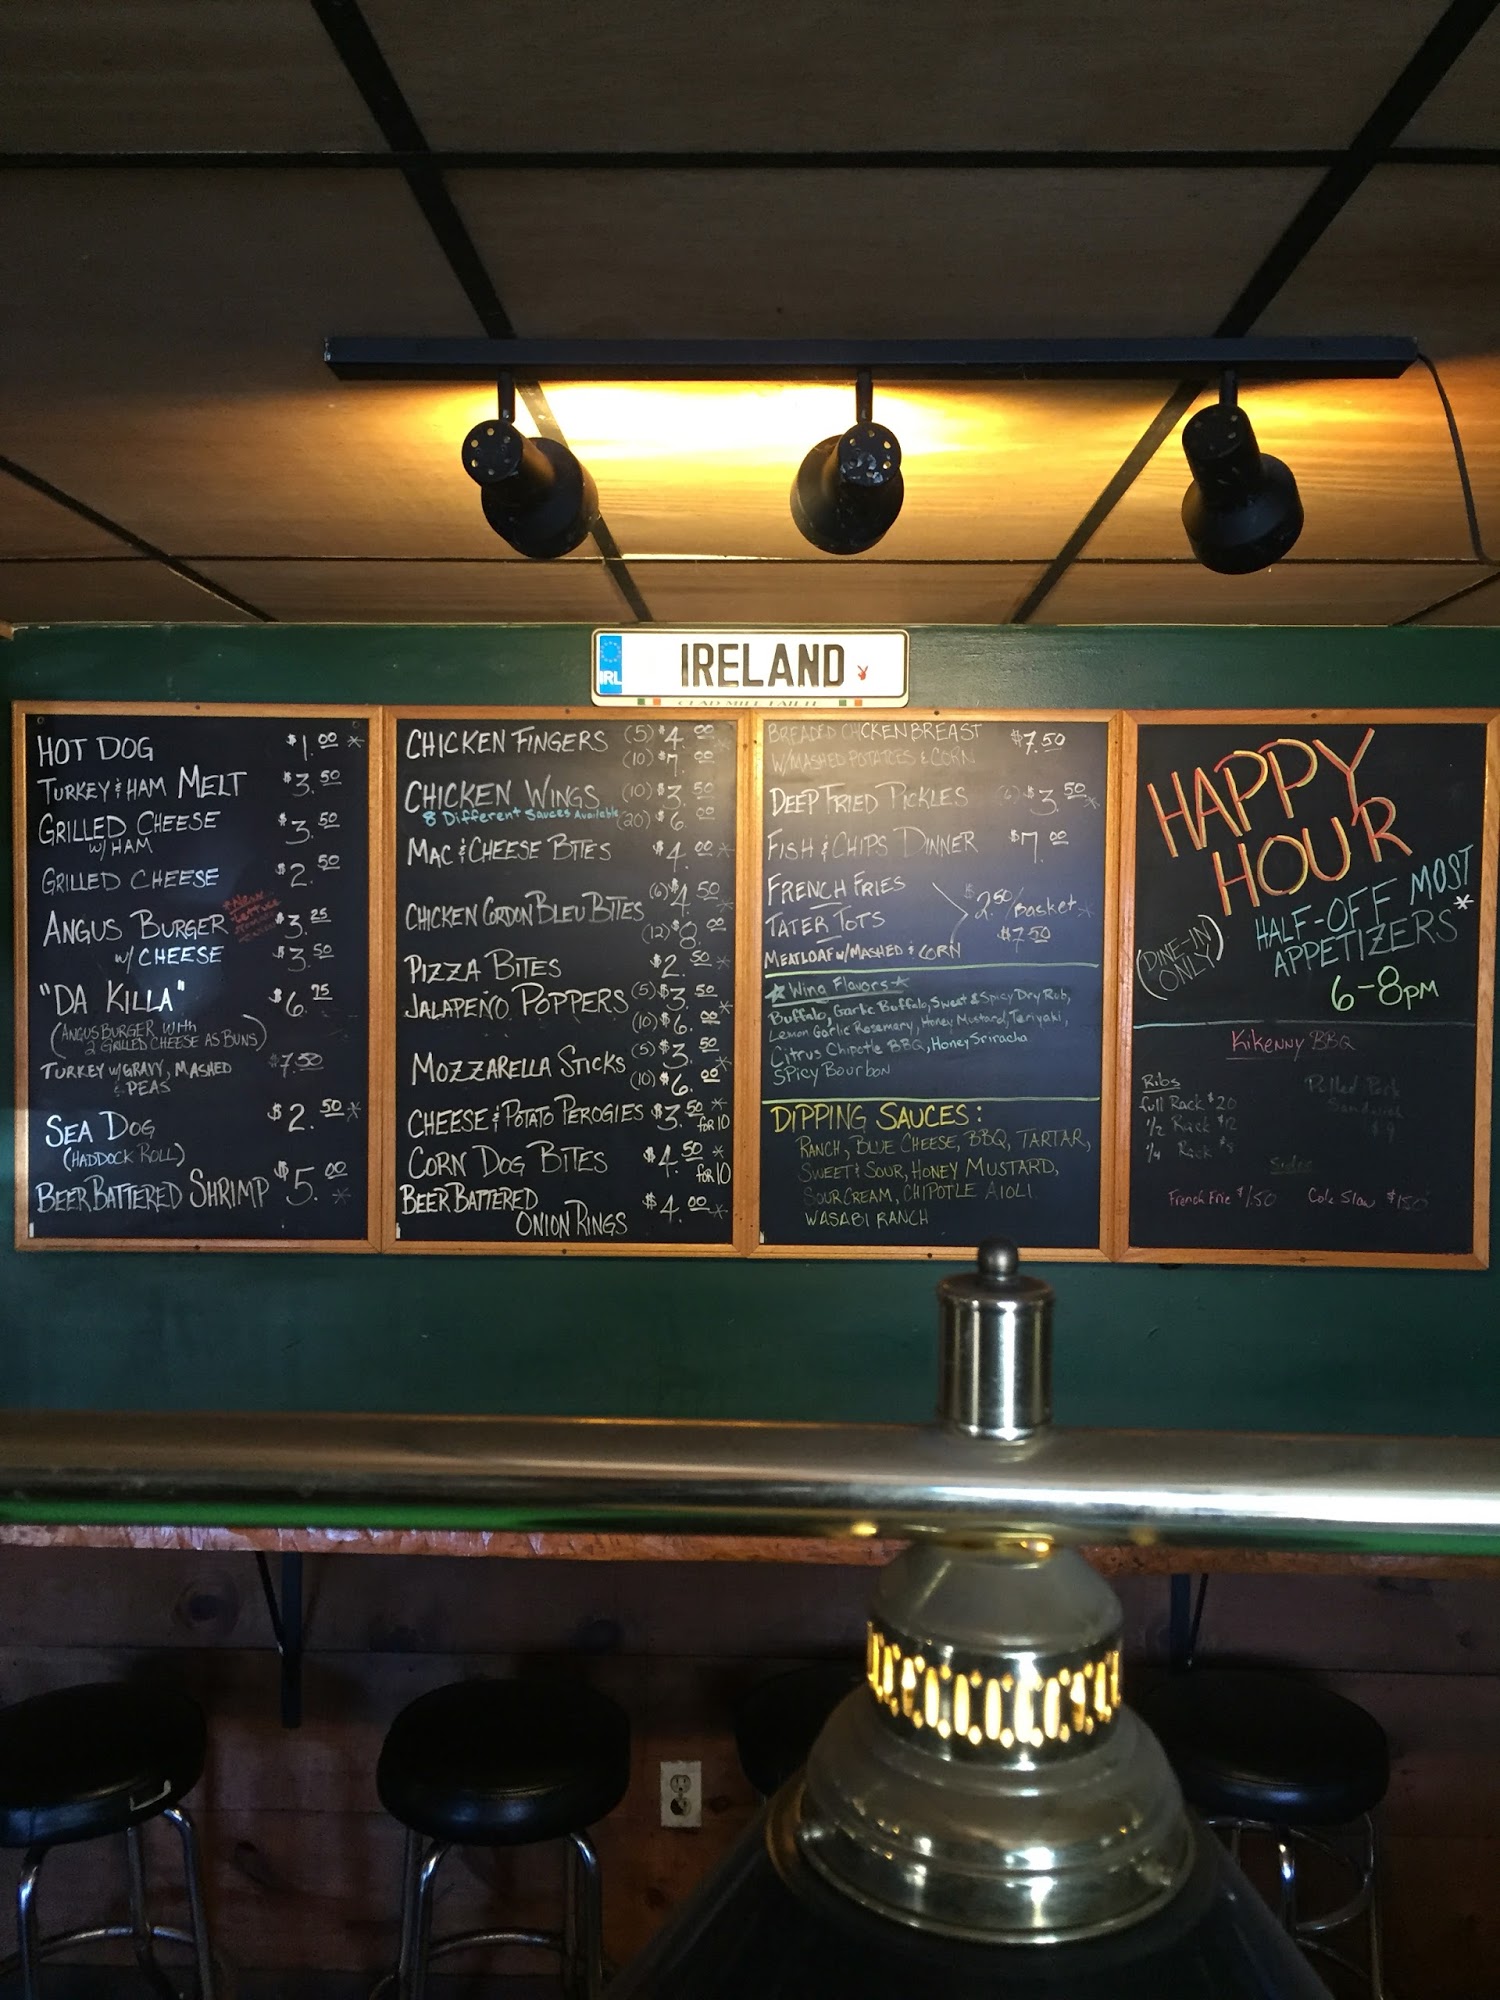 IRL IRELAND
HOT DOG $1.00 *
TURKEY & HAM MELT $3.50
GRILLED CHEESE $3.50
W/ HAM
GRILLED CHEESE $2.50
ANGUS BURGER $3.25
W/ CHEESE $3.50
"DA KILLA" $6.75
(ANGUS BURGER WITH
2 GRILLED CHEESE AS BUNS)
TURKEY W/GRAVY, MASHED $7.50
& PEAS
SEA DOG $2.50 *
(HADDOCK ROLL)
BEER BATTERED SHRIMP $5.00 *
CHICKEN FINGERS (5) $4.00
(10) $7.00
CHICKEN WINGS (10) $3.50
8 Different Sauces Available (20) $6.00
MAC & CHEESE BITES $4.00 *
(6) $4.50
CHICKEN CORDON BLEU BITES
(12) $8.00
PIZZA BITES $2.50 *
JALAPEÑO POPPERS (5) $3.50
(10) $6.00 *
MOZZARELLA STICKS (5) $3.50 *
(10) $6.00
CHEESE & POTATO PEROGIES $3.50 *
for 10
CORN DOG BITES $4.50 *
for 10
BEER BATTERED $4.00 *
ONION RINGS
BREADED CHICKEN BREAST $7.50
W/MASHED POTATOES & CORN
DEEP FRIED PICKLES $3.50 *
FISH & CHIPS DINNER $7.00
FRENCH FRIES
TATER TOTS $2.50/Basket *
MEATLOAF W/MASHED & CORN $7.50
* Wing Flavors *
Buffalo, Garlic Buffalo, Sweet & Spicy Dry Rub,
Lemon Garlic Rosemary, Honey Mustard, Teriyaki,
Citrus Chipotle BBQ, Honey Sriracha
Spicy Bourbon
DIPPING SAUCES:
RANCH, BLUE CHEESE, BBQ, TARTAR,
SWEET & SOUR, HONEY MUSTARD,
SOUR CREAM, CHIPOTLE AIOLI
WASABI RANCH
HAPPY
HOUR
HALF-OFF MOST
APPETIZERS*
(DINE-IN
ONLY)
6-8PM
Kikenny BBQ
Ribs
full Rack $20
1/2 Rack $12
1/4 Rack
Pulled Pork
Sandwich
$9
Sides
French Frie $1.50 Cole Slaw $1.50